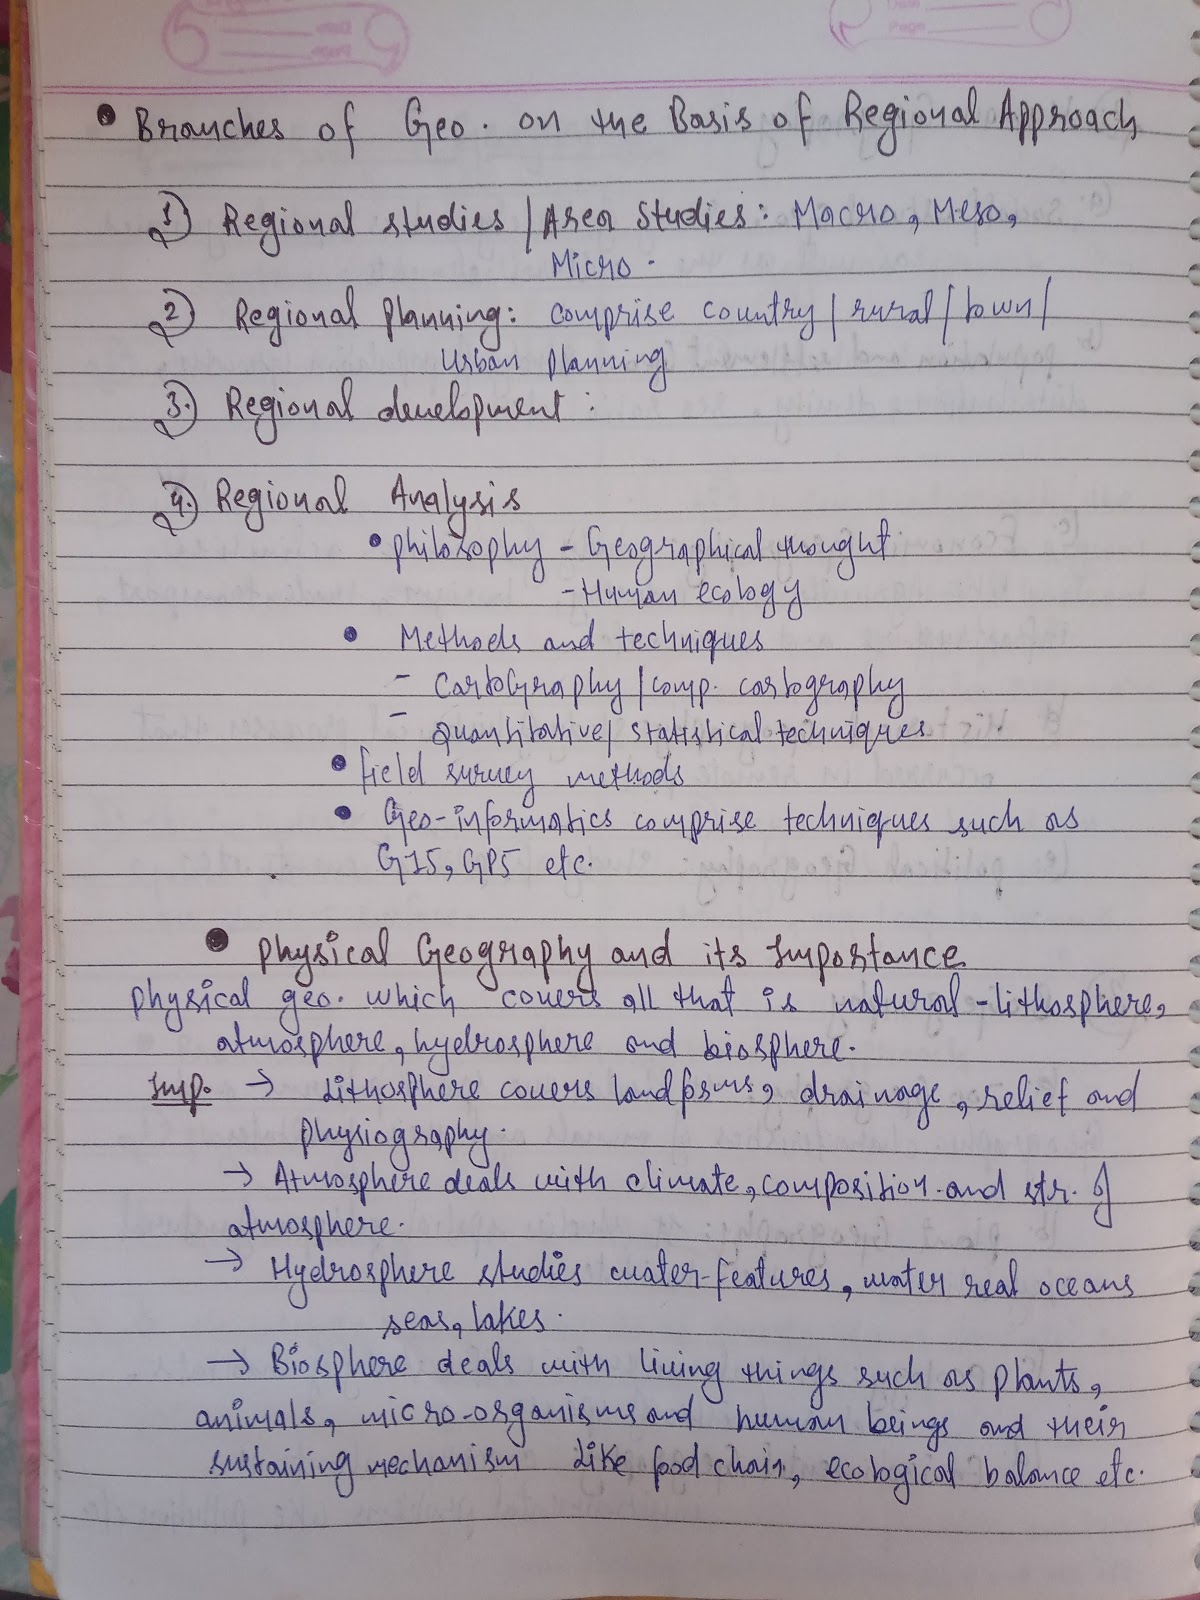 • Branches of Geo. on the Basis of Regional Approach
1) Regional studies / Area Studies: Macro, Meso,
Micro.
2) Regional planning: comprise country / rural / town /
Urban planning
3.) Regional development:
4.) Regional Analysis
• philosophy - Geographical thought
- Human ecology
• Methods and techniques
- Cartography / comp. cartography
- Quantitative / statistical techniques
• field survey methods
• Geo-informatics comprise techniques such as
GIS, GPS etc.
• Physical Geography and its Importance
physical geo. which covers all that is natural - lithosphere,
atmosphere, hydrosphere and biosphere.
Imp. → Lithosphere covers landforms, drainage, relief and
physiography.
→ Atmosphere deals with climate, composition and str. of
atmosphere.
→ Hydrosphere studies water-features, water real oceans
seas, lakes.
→ Biosphere deals with living things such as plants,
animals, micro-organisms and human beings and their
sustaining mechanism like food chain, ecological balance etc.